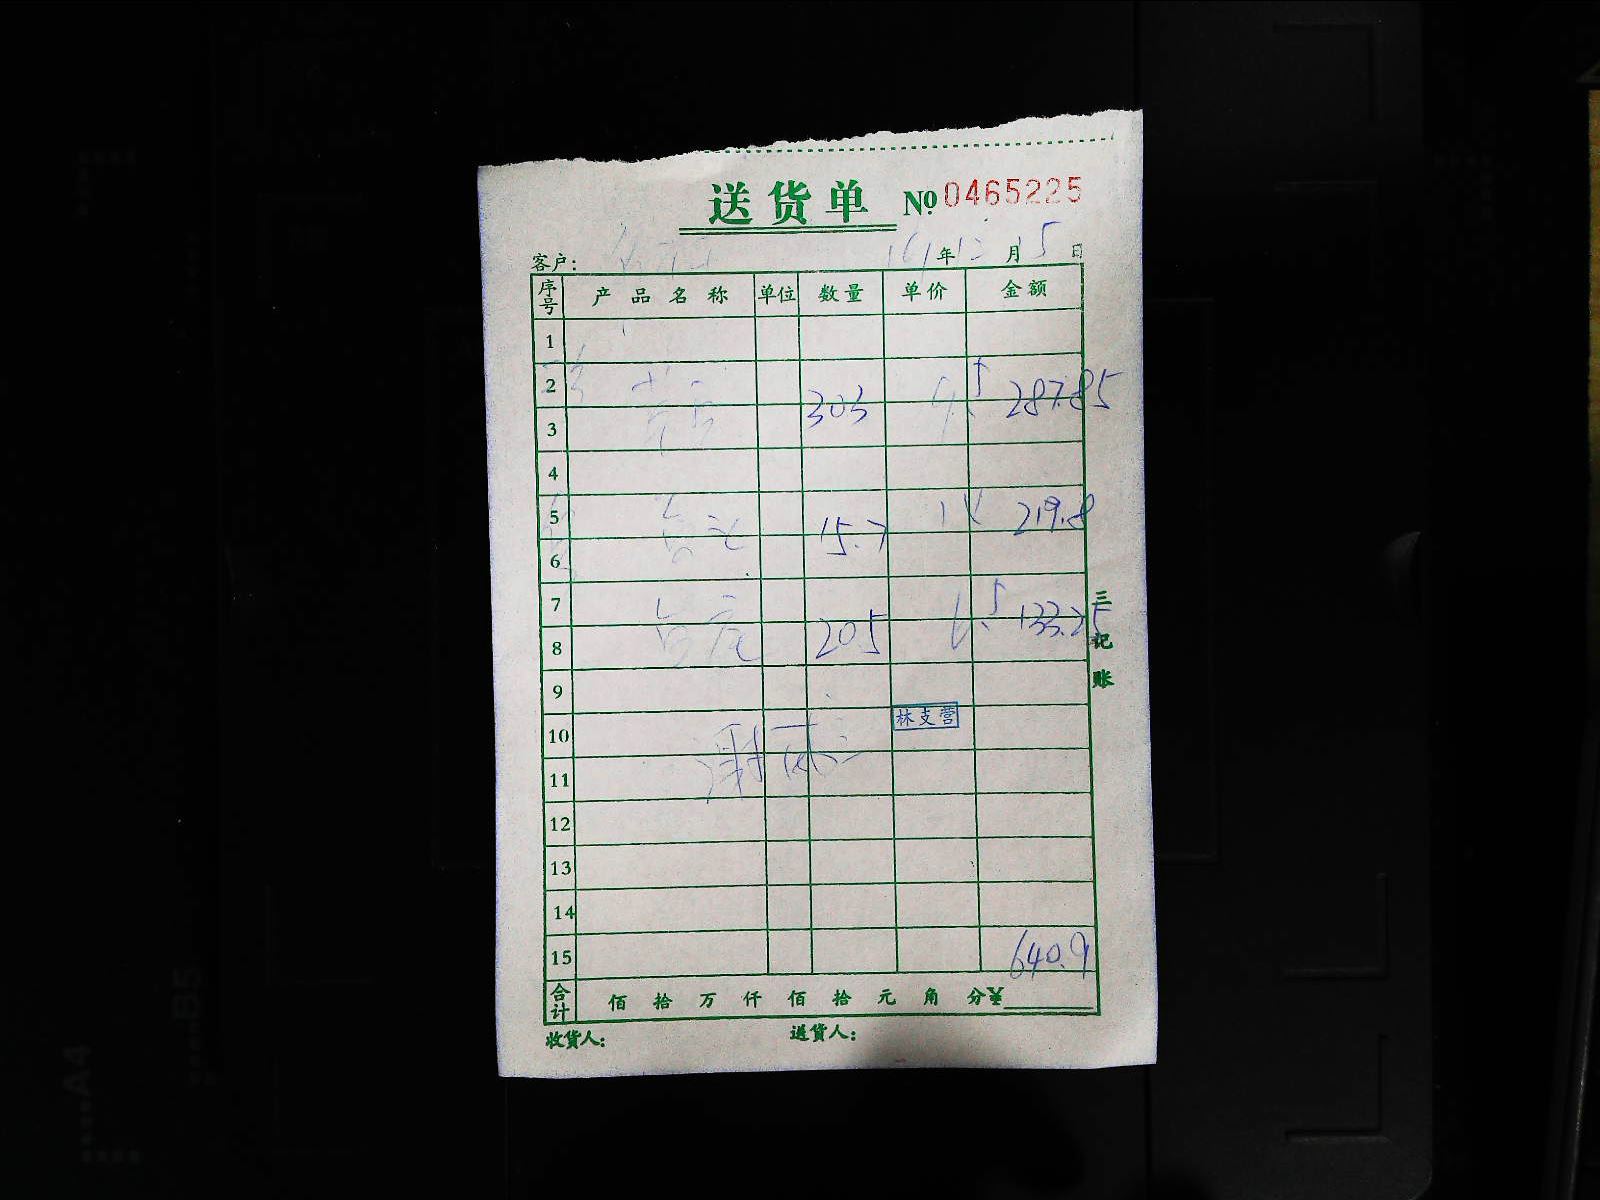 送货单 № 0465225
客户： 年 月 5 日
序号 产品名称 单位 数量 单价 金额
1
2
303 9.5 287.85
3
4
5
15.7 14 219.8
6
7
205 6.5 133.25
8
9
林支营
10
11
12
13
14
15 640.9
合计 佰 拾 万 仟 佰 拾 元 角 分 ¥
收货人： 送货人：
三记账